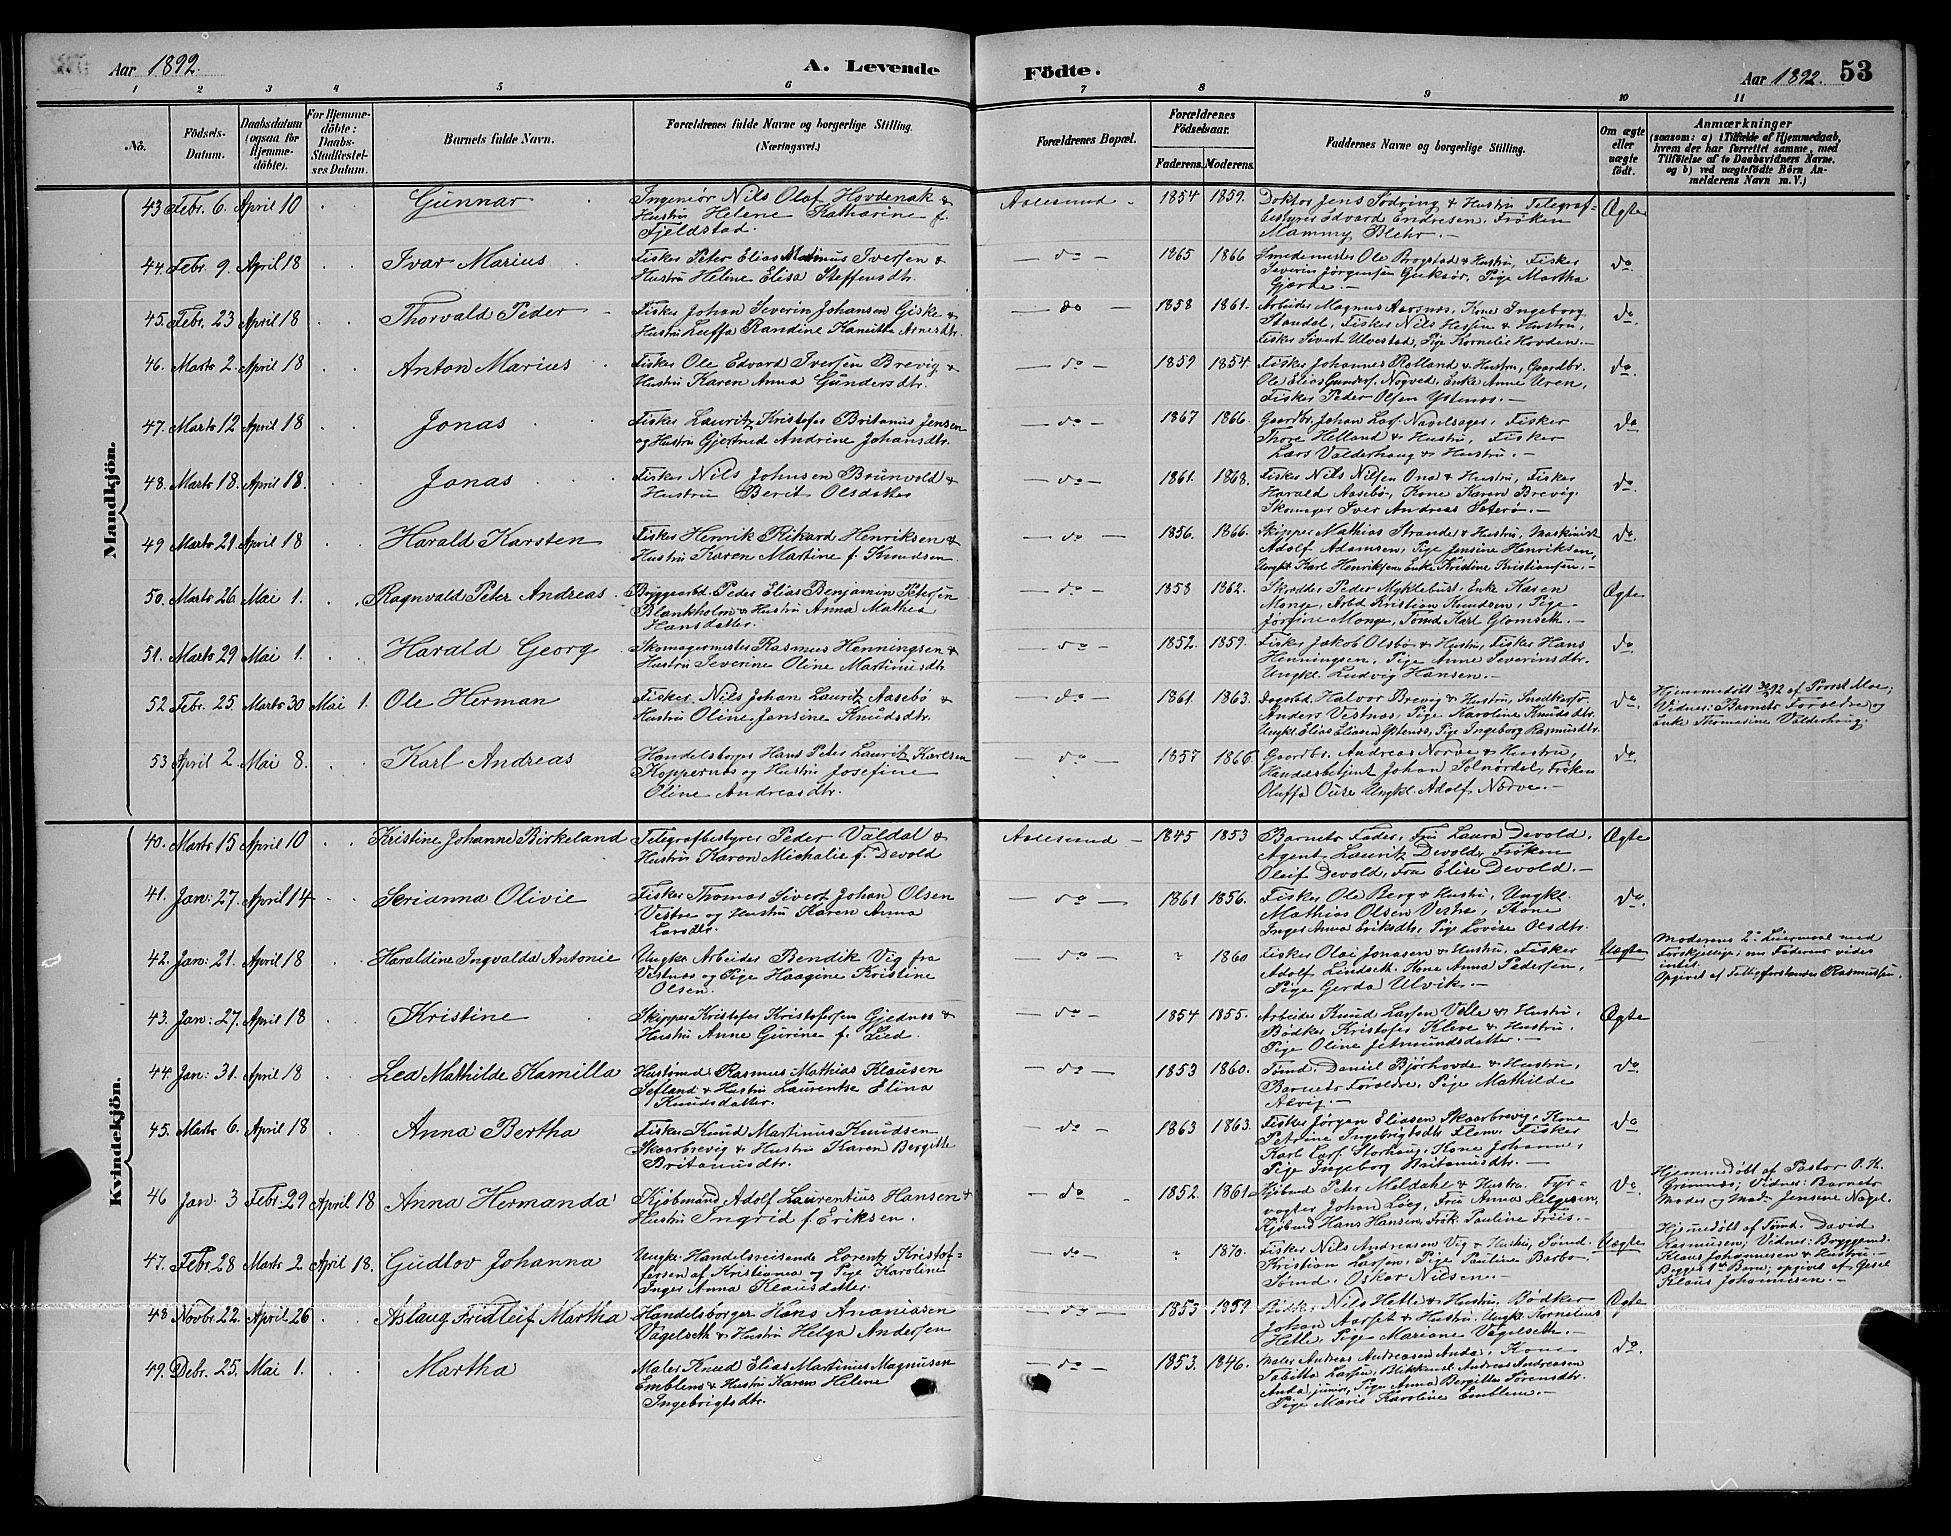 Aar 1892. A. Levende Födte. Aar 1892. 53
1 2 3 4 5 6 7 8 9 10 11
No. Födsels-Datum. Daabsdatum (ogsaa for Hjemme-döbte). For Hjemme-döbte: Daabs-Stadfæstel-ses Datum. Barnets fulde Navn. Forældrenes fulde Navne og borgerlige Stilling. (Næringsvei.) Forældrenes Bopæl. Forældrenes Födselsaar. Faderens. Moderens. Faddernes Navne og borgerlige Stilling. Om ægte eller uægte födt. Anmærkninger (saasom: a) i Tilfælde af Hjemmedaab, hvem der har forrettet samme, med Tilföielse af to Daabsvidners Navne. og b) ved uægtefödte Börn An-melderens Navn m. V.)
Mandkjön.
43 Febr. 6. April 10 Gunnar Ingeniør Nils Olaf Hovdenak & Aalesund 1854 1859. Doktor Jens Södring & Hustru Telegraf- Ægte
Hustru Helene Katharine f. bestyrer Edvard Endresen, Frøken
Fjeldstad. Mammy Blehr.
44. Febr. 9. April 18 Ivar Marius Fisker Peter Elias Mathinus Iversen & do 1865 1866 Smedemester Ole Brogstad & Hustru, Fisker do
Hustru Heline Elisa Steffensdtr. Severin Jörgensen Guksör, Pige Martha
Gjærde.
45. Febr. 23 April 18 Thorvald Peder Fisker Johan Severin Johansen Giske & do 1858 1861. Arbeider Magnus Aarsnes, Kone Ingeborg do.
Hustru Luffa Randine Kanitta Arnesdtr. Standal, Fisker Nils Hessen & Hustru,
Fisker Sivert Ulvestad, Pige Kornelie Horden.
46. Marts 2. April 18 Anton Marius Fisker Ole Edvard Iversen Brevig & do 1859 1854. Fisker Johannes Rolland & Hustru, Gaardbr. do.
Hustru Karen Anna Gundersdtr. Ole Elias Gunders. Nogved, Enke Anne Uren,
Fisker Peder Olsen Ystenes.
47. Marts 12 April 18 Jonas Fisker Lauritz Kristofer Britanus Jensen do 1867 1866. Gaardbr. Johan Laf. Navelsager, Fisker do
og Hustru Gjertrud Andrine Johansdtr. Thore Helland & Hustru, Fisker
Lars Valderhaug & Hustru.
48. Marts 18. April 18. Jonas Fisker Nils Johnsen Brunvold & do 1861. 1868. Fisker Nils Nilsen Ona & Hustru, Fisker do.
Hustru Berit Olsdatter Harald Aasebø, Kone Karen Brevig.
Skomager Iver Andreas Sæterø.
49 Marts 21. April 18 Harald Karsten Fisker Henrik Rikard Henriksen & do 1856. 1866. Skipper Mathias Strande & Hustru, Maskinist do.
Hustru Karen Martine f. Knudsen. Adolf Adamsen, Pige Jensine Henriksen,
Ungk. Karl Henriksen, Enke Kristine Kristiansen.
50. Marts 26. Mai 1. Ragnvald Peter Andreas Bryggearbd. Peder Elias Benjamin Petersen do 1858 1862. Skrædder Peder Myklebust, Enke Karen Ægte
Blankholm & Hustru Anna Mathea Monge, Arbd. Kristian Knudsen, Pige
Hansdatter. Jörgine Monge, Tømd. Karl Glomseth.
51. Marts 29 Mai 1. Harald Georg Skomagermester Rasmus Henningsen & do 1852. 1859. Fisker Jakob Olsbø & Hustru, Fisker Hans do
Hustru Severine Oline Martinisdtr. Henningsen, Pige Anne Severinsdtr.
Ungkl. Ludvig Hansen.
52 Febr. 25. Marts 30 Mai 1. Ole Herman Fisker Nils Johan Lauritz Aasebø & do 1861. 1863. Dagarbd. Halvor Brevig & Hustru, Snedkersv. do. Hjemmedöbt 30/3 92 af Provst Moe;
Hustru Oline Jensine Knudsdtr. Anders Vestnes, Pige Karoline Knudsdtr. Vidner: Barnets Forældre og
Ungkl. Elias Eliasen Ystenes, Pige Ingeborg Rasmusdtr. Enke Thomasine Valderhaug.
53 April 2. Mai 8. Karl Andreas Handelsborger Hans Peter Lauritz Karlsen do 1857 1866. Gaardbr. Andreas Norve & Hustru, do.
Koppernes og Hustru Josefine Handelsbetjent Johan Solnørdal, Frøken
Oline Andreasdtr. Oluffa Ouse, Ungkl. Adolf Nørve.
Kvindekjön.
40. Marts 15 April 10 Kristine Johanne Birkeland Telegrafbestyrer Peder Valdal & Aalesund 1845 1853 Barnets Fader, Fru Laura Devold. Ægte
Hustru Karen Michalie f. Devold Agent Lauritz Devold, Frøken
Oleif Devold, Fru Elise Devold.
41. Jan: 27. April 14 Serianna Olivie Fisker Thomas Sivert Johan Olsen do 1861 1856. Fisker Ole Berg & Hustru, Ungkl. do.
Vestre og Hustru Karen Anna Mathias Olsen Vestre, Kone
Larsdtr. Inger Anna Eriksdtr, Pige Lovise Olsdtr.
42. Jan: 21. April 18 Haraldine Ingvalda Antonie Ungk. Arbeider Bendik Vig fra do ? 1860 Fisker Olai Jonasen & Hustru, Fisker Uægte Moderens 2det Leiermaal med
Vestnes og Pige Haagine Kristine Adolf Lindseth, Kone Anna Pedersen, Forskjellige; om Faderen vides
Olsen. Pige Gerda Ulvik. intet.
Opgivet af Fattigforstander Rasmussen.
43. Jan: 27. April 18 Kristine Skipper Kristofer Kristofersen Gjednes & do 1854 1855. Arbeider Knud Larsen Valle & Hustru, Ægte
Hustru Anne Gurine f. Lied. Bødker Kristofer Kleve & Hustru,
Pige Oline Jetmundsdatter.
44. Jan: 31. April 18 Lea Mathilde Kamilla Husmand Rasmus Mathias Klausen do 1853 1860. Tømd. Daniel Bjørhovde & Hustru, do.
Sefland & Hustru Laurentse Elina Barnets Forældre, Pige Mathilde
Knudsdatter. Alvig.
45. Marts 6. April 18 Anna Bertha Fisker Knud Martinus Knudsen do 1863 1863. Fisker Jørgen Eliasen Skaarbrevig, Kone do
Skaarbrevig & Hustru Karen Bergitte Petrine Ingebrigtsdtr. Flem, Fisker
Britanusdtr. Karl Carl. Storhaug, Kone Johanne,
Pige Ingeborg Britanusdtr.
46 Jan. 3 Febr. 29 April 18 Anna Hermanda Kjöbmand Adolf Laurentius Hansen & do 1852. 1861. Kjöbmd Peter Meldahl & Hustru. Fyr- do. Hjemmedöbt af Pastor O. K.
Hustru Ingrid f. Eriksen. vogter Johan Löeg, Fru Anna Helgesen, Grimnes; Vidner: Barnets
Kjöbmd Hans Hansen, Frøk. Pauline Freis. Moder og Mad. Jensine Nagel.
47. Febr. 28 Marts 2. April 18. Gudlov Johanna Ungk. Handelsreisende Lorentz Kristof- do ? 1870. Fisker Nils Andreasen Vig & Hustru, Tømd. Uægte Hjemmedöbt af Tømd. David
fersen af Kristiania og Pige Karoline Kristian Larsen, Pige Pauline Barbo Rasmusen; Vidner: Bryggemd.
Inger Anna Klausdatter Tømd. Oskar Nilsen. Klaus Johannesen & Hustru.
Begges 1ste Barn; opgivet af Gesel
Klaus Johannesen.
48 Novbr. 22. April 26 Aslaug Fridleif Martha Handelsborger Hans Ananiassen do 1853 1859 Bødk. Nils Hetle & Hustru, Bødker Ægte
Vagelseth & Hustru Helga Andersen Johan Aarset & Hustru, Ungkl. Kornelius
Hetle, Pige Mariane Vagelseth.
49. Debr. 25. Mai 1. Martha Maler Knud Elias Martinius Magnusen do 1853. 1846. Maler Andreas Andreasen Anda, Kone do.
Emblem & Hustru Karen Helene Tabitta Larsen, Blikkensl. Andreas Andreasen
Ingebrigtsdtr. Anda junior, Pige Anna Bergitte Sörensdtr.
Pige Marie Karoline Emblem.